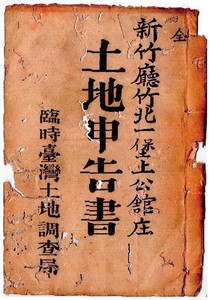 全
新竹廳竹北一堡上公館庄
土地申告書
臨時臺灣土地調查局